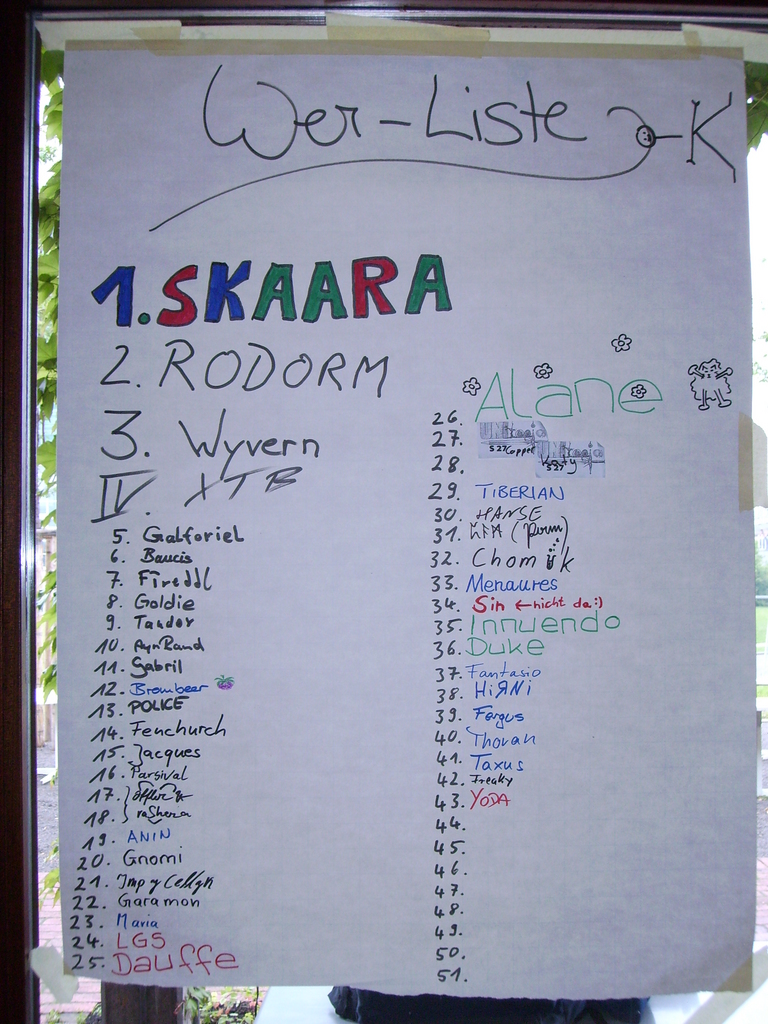 Wer-Liste
K
1. SKAARA
2. RODORM
3. Wyvern
IV. XTB
5. Galforiel
6. Baucis
7. Fireddl
8. Goldie
9. Tandor
10. AynRand
11. Gabril
12. Brombeer
13. POLICE
14. Fenchurch
15. Jacques
16. Parsival
17.
18. rashera
19. ANIN
20. Gnomi
21.
22. Garamon
23. Maria
24. LGS
25. Dauffe
26. Alane
27. 527 Cappel
28. Katy 527
29. TIBERIAN
30. HANSE
31.
32. Chomik
33. Menaures
34. Sin ← nicht da :)
35. Innuendo
36. Duke
37. Fantasio
38. HiЯNi
39. Fergus
40. Thovan
41. Taxus
42. Freaky
43. YODA
44.
45.
46.
47.
48.
49.
50.
51.